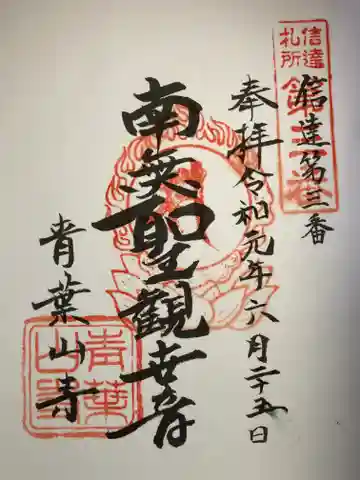 信達札所
信達第三番
奉拝令和元年六月二十五日
南無聖観世音
青葉山寺